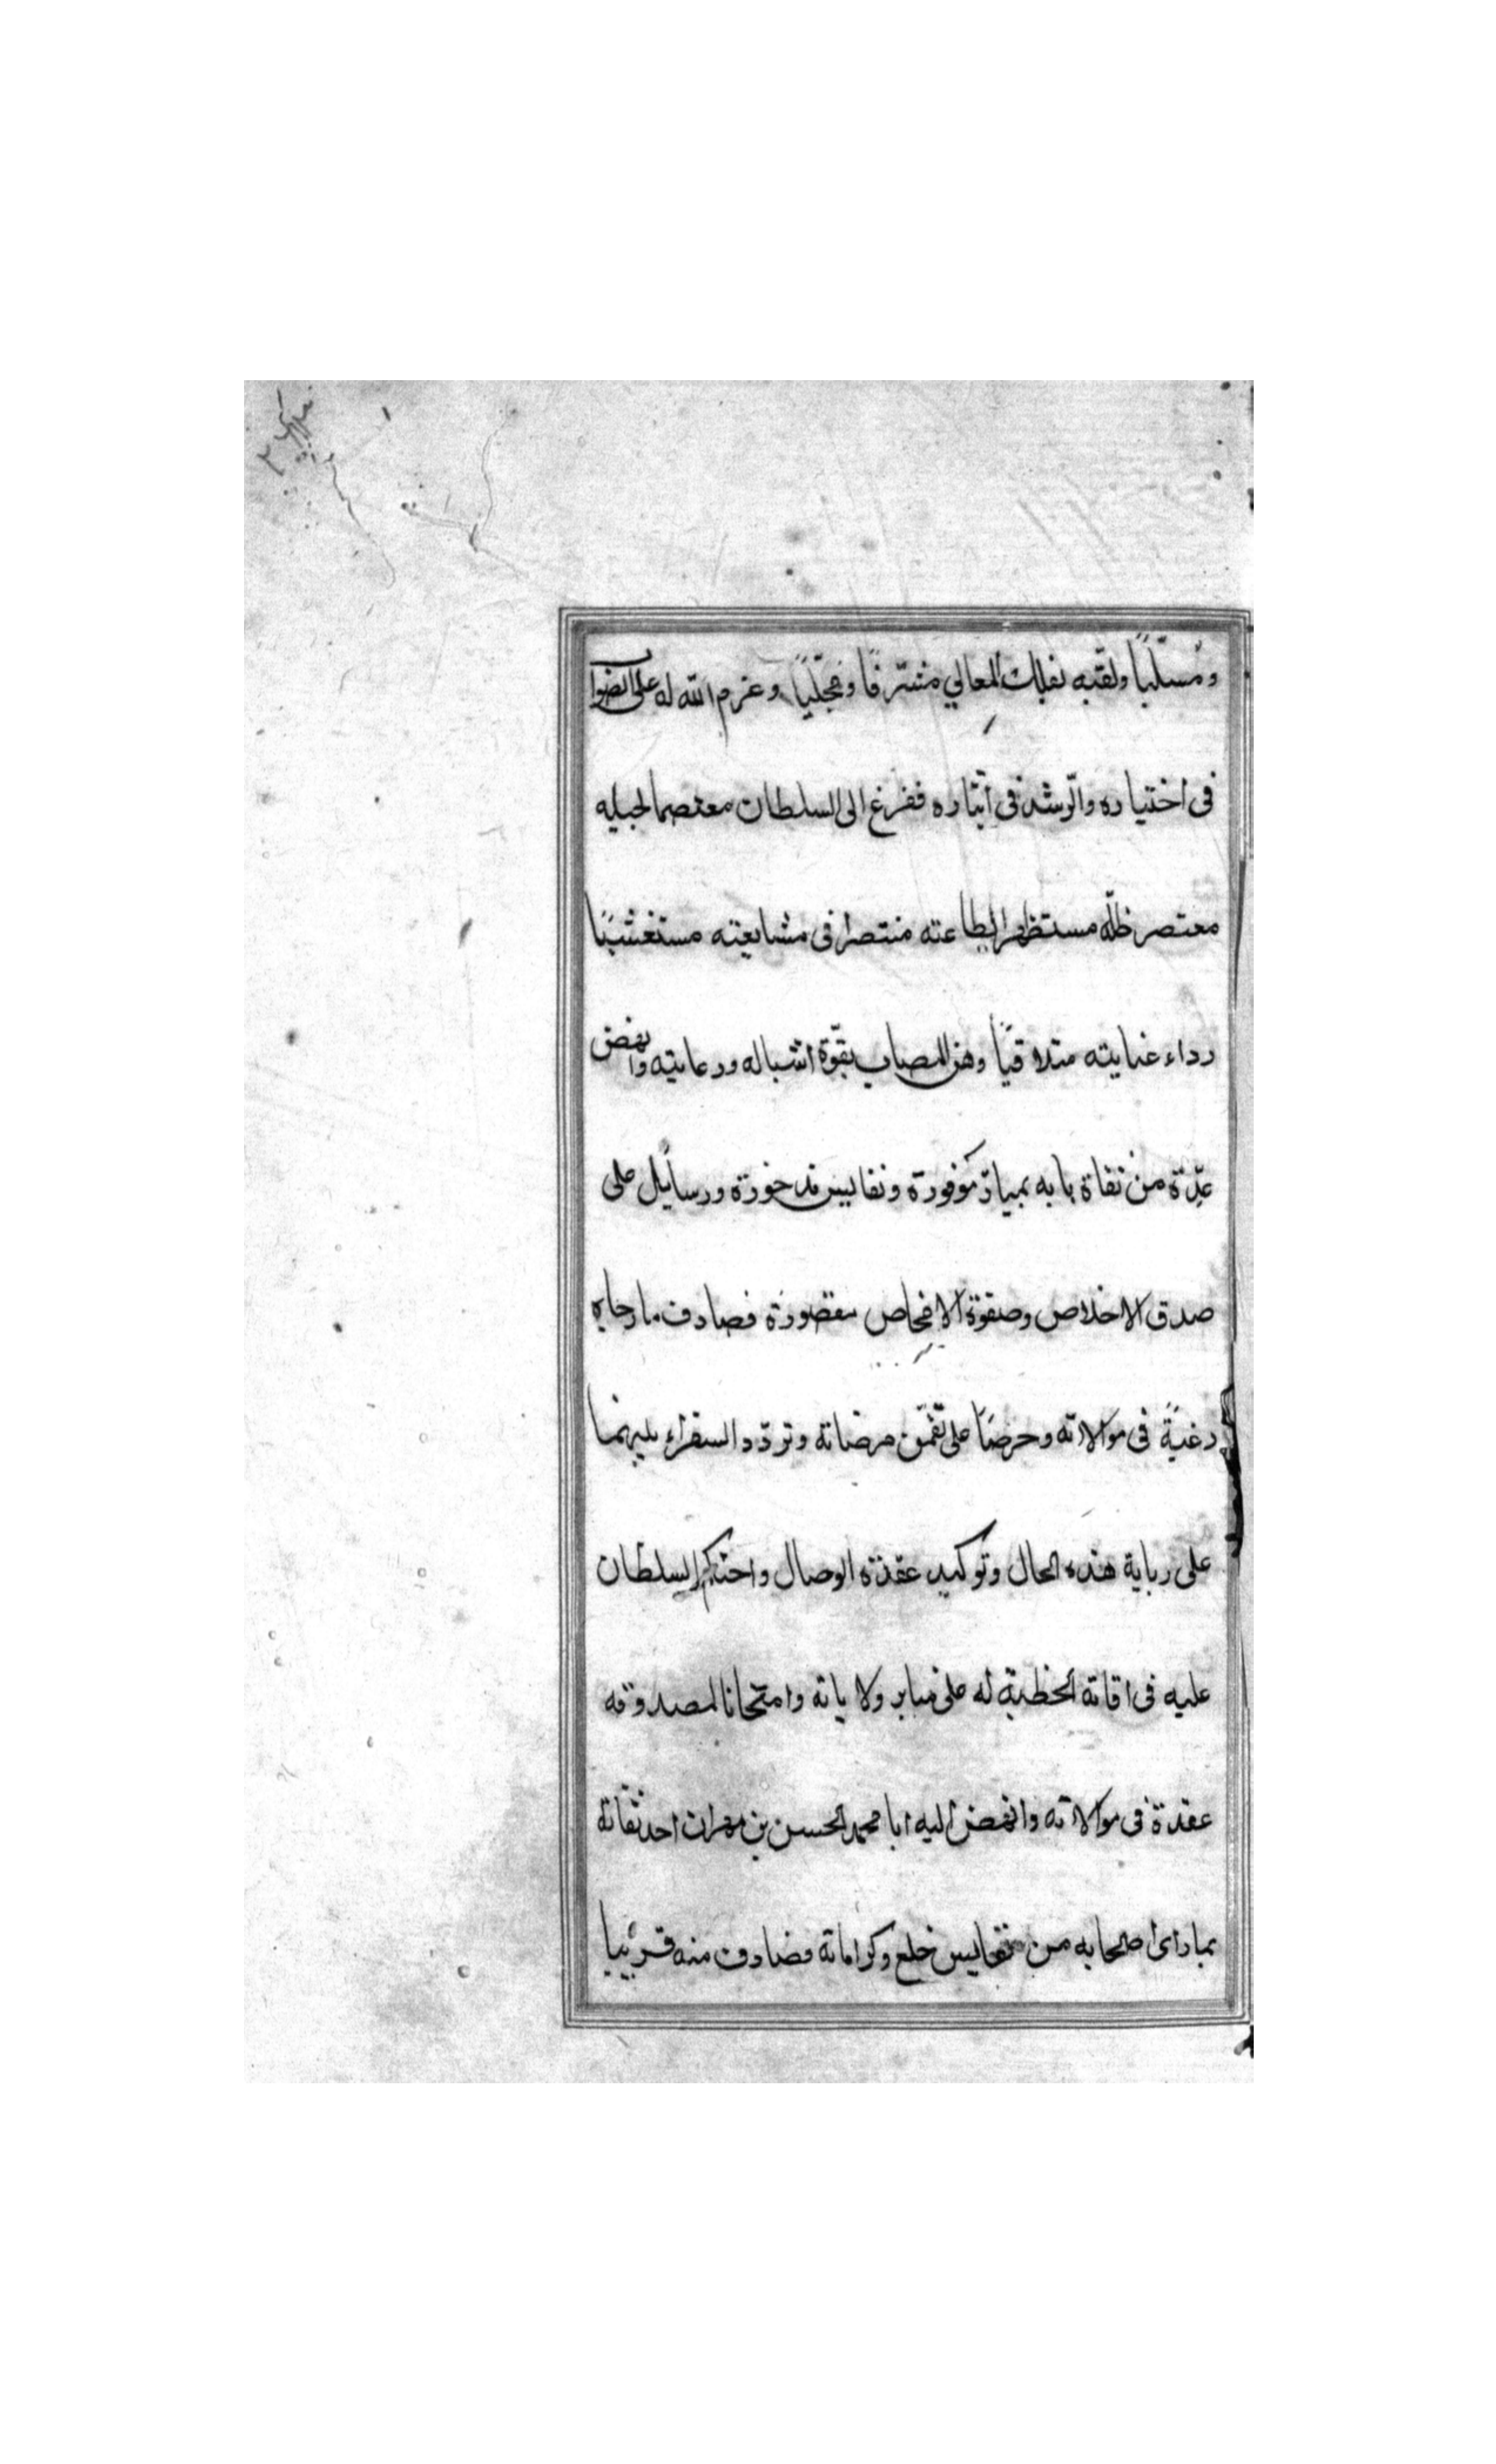 ومسلّيًا ولقّبه بفلك المعالي مشرّفًا ومجلّيًا وعزم الله له على الصواب
فى اختياره والرّشد فى آيثاره ففرغ الى السلطان معتصما لجبله
معتصر ظلّه مستظهرا بطاعته منتصرا فى مشايعته مستغشيًا
رداء عنايته متلاقيًا وهن المصاب بقوّة اشباله ورعايته وانهض
عدّة من ثقاة بابه بمبارّ موفورة ونفايس مذخورة ورسايل على
صدق الاخلاص وصفوة الافحاص مقصورة فصادف ما رجاه
رغبةً فى موالاته وحرصًا على تقمّن مرضاته وتردّد السفراء بينهما
على رباية هذه الحال وتوكيد عقدة الوصال واحتكم السلطان
عليه فى اقاته الخطبة له على منابر ولاياته وامتحانا لمصدوقه
عقدة فى موالاته وانهض اليه ابا محمد الحسن بن مهران احد ثقاته
بما راى اصحابه من نفايس خلع وكراماته فصادف منه قريبا